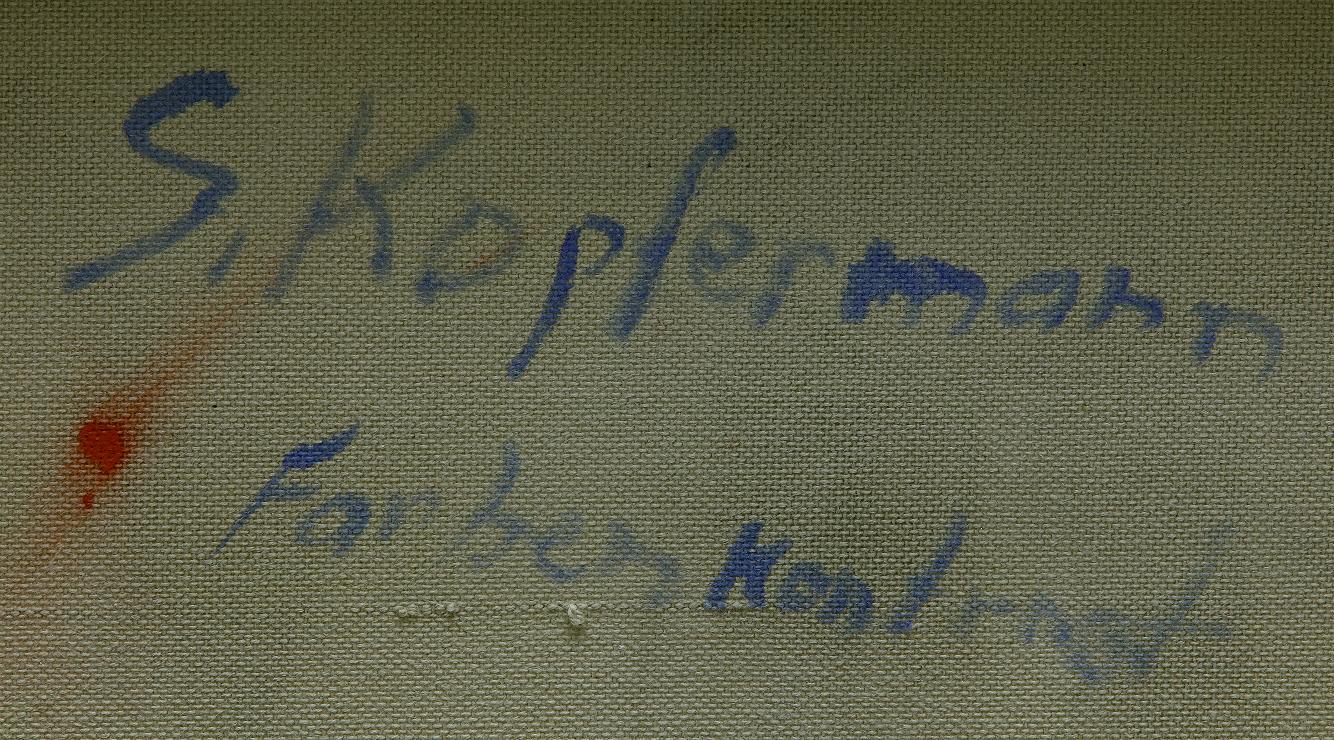 S. Kopfermann
Farben Kontrast